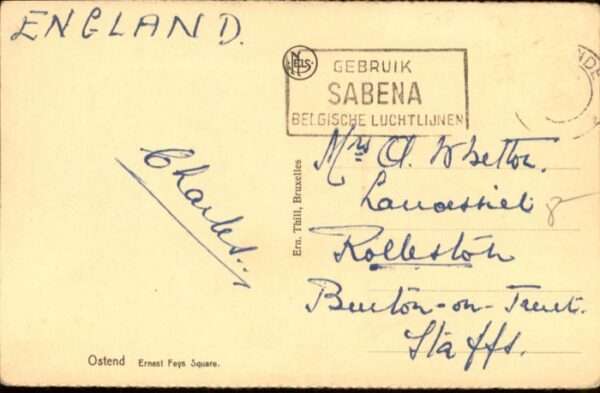 ENGLAND.
NELS
GEBRUIK
SABENA
BELGISCHE LUCHTLIJNEN
Mrs A. Whetton.
Rolleston
Burton-on-Trent.
Staffs.
Charles...
Ern. Thill, Bruxelles
Ostend Ernest Feys Square.